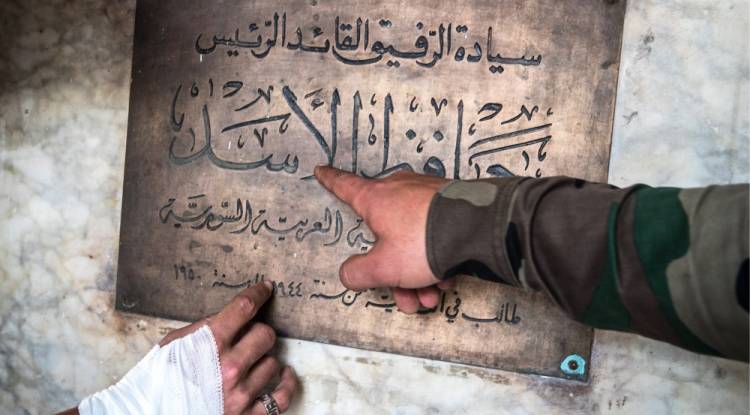 سيادة الرّفيق القائد الرّئيس
حافظ الأسد
العربيّة السّوريّة
طالب في من سنة ١٩٤٤ لسنة ١٩٥٠